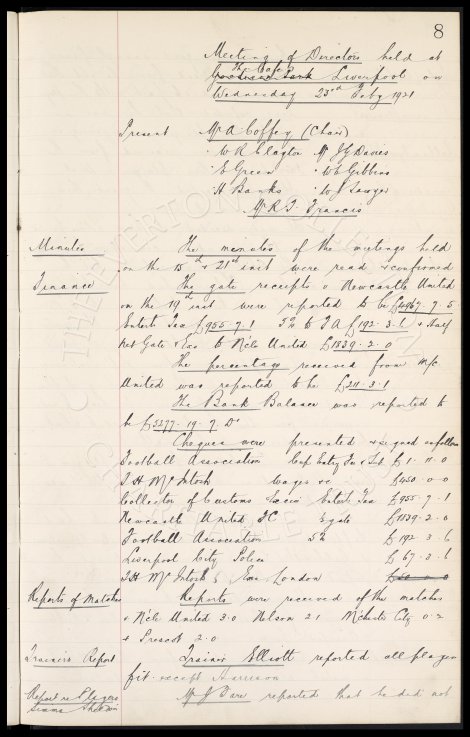 8
Meeting of Directors held at
The Cafe
Goodison Park Liverpool on
Wednesday 23rd Feby 1921
Present Mr A Coffey (Chair)
" W R Clayton Mr J G Davies
" E Green " W E Gibbins
H Banks " W J Sawyer
Mr R T Francis
Minutes The minutes of the meetings held
on the 15th & 21st inst were read & confirmed
Finance The gate receipts v Newcastle United
on the 19th inst were reported to be £4967. 9. 5
Entert Tax £955. 9. 1 5% to F A £192. 3. 6 & Half
net Gate & Exs to N'cle United £1839. 2. 0
The percentage received from M/c
United was reported to be £211. 3. 1
The Bank Balance was reported to
be £5277. 19. 9. Dr
Cheques were presented & signed as follows
Football Association Cup Entry Fee & Sub £1. 11. 0
T H McIntosh Wages &c £450. 0. 0
Collector of Customs & Excise Entert Tax £955. 9. 1
Newcastle United FC ½ gate £1839. 2. 0
Football Association 5% £192. 3. 6
Liverpool City Police £67. 3. 6
T H McIntosh London
Reports of Matches Reports were received of the matches
v N'cle United 3.0 Nelson 2.1 M'chester City 0.2
& Prescot 2.0
Trainers Report Trainer Elliott reported all players
fit except Harrison
Report re Players Mr J Dare reported that he did not